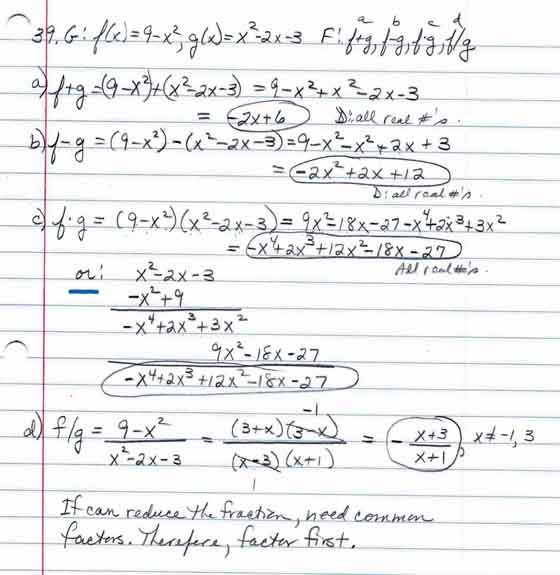 39. G: f(x) = 9-x², g(x) = x²-2x-3 F: f+g, f-g, f·g, f/g
a b c d
a) f+g = (9-x²)+(x²-2x-3) = 9-x²+x²-2x-3
= -2x+6 D: all real #'s.
b) f-g = (9-x²)-(x²-2x-3) = 9-x²-x²+2x+3
= -2x²+2x+12
D: all real #'s.
c) f·g = (9-x²)(x²-2x-3) = 9x²-18x-27-x⁴+2x³+3x²
= -x⁴+2x³+12x²-18x-27
All real #'s.
or: x²-2x-3
-x²+9
-x⁴+2x³+3x²
9x²-18x-27
-x⁴+2x³+12x²-18x-27
d) f/g = 9-x² / x²-2x-3 = (3+x)(3-x) / (x-3)(x+1) = - x+3 / x+1, x≠-1, 3
-1
1
If can reduce the fraction, need common
factors. Therefore, factor first.